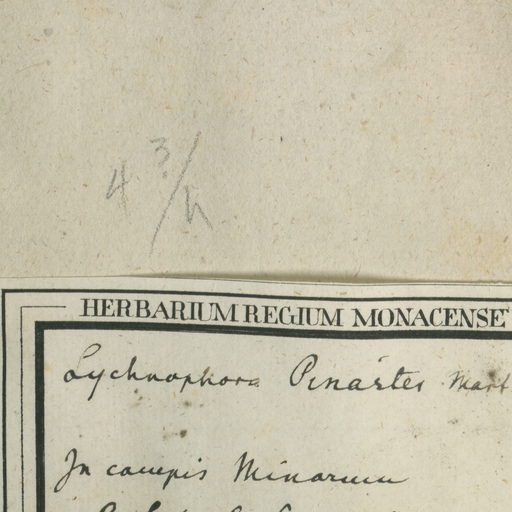 4 3/4
HERBARIUM REGIUM MONACENSE
Lychnophora Pinastes Mart
In campis Minarum